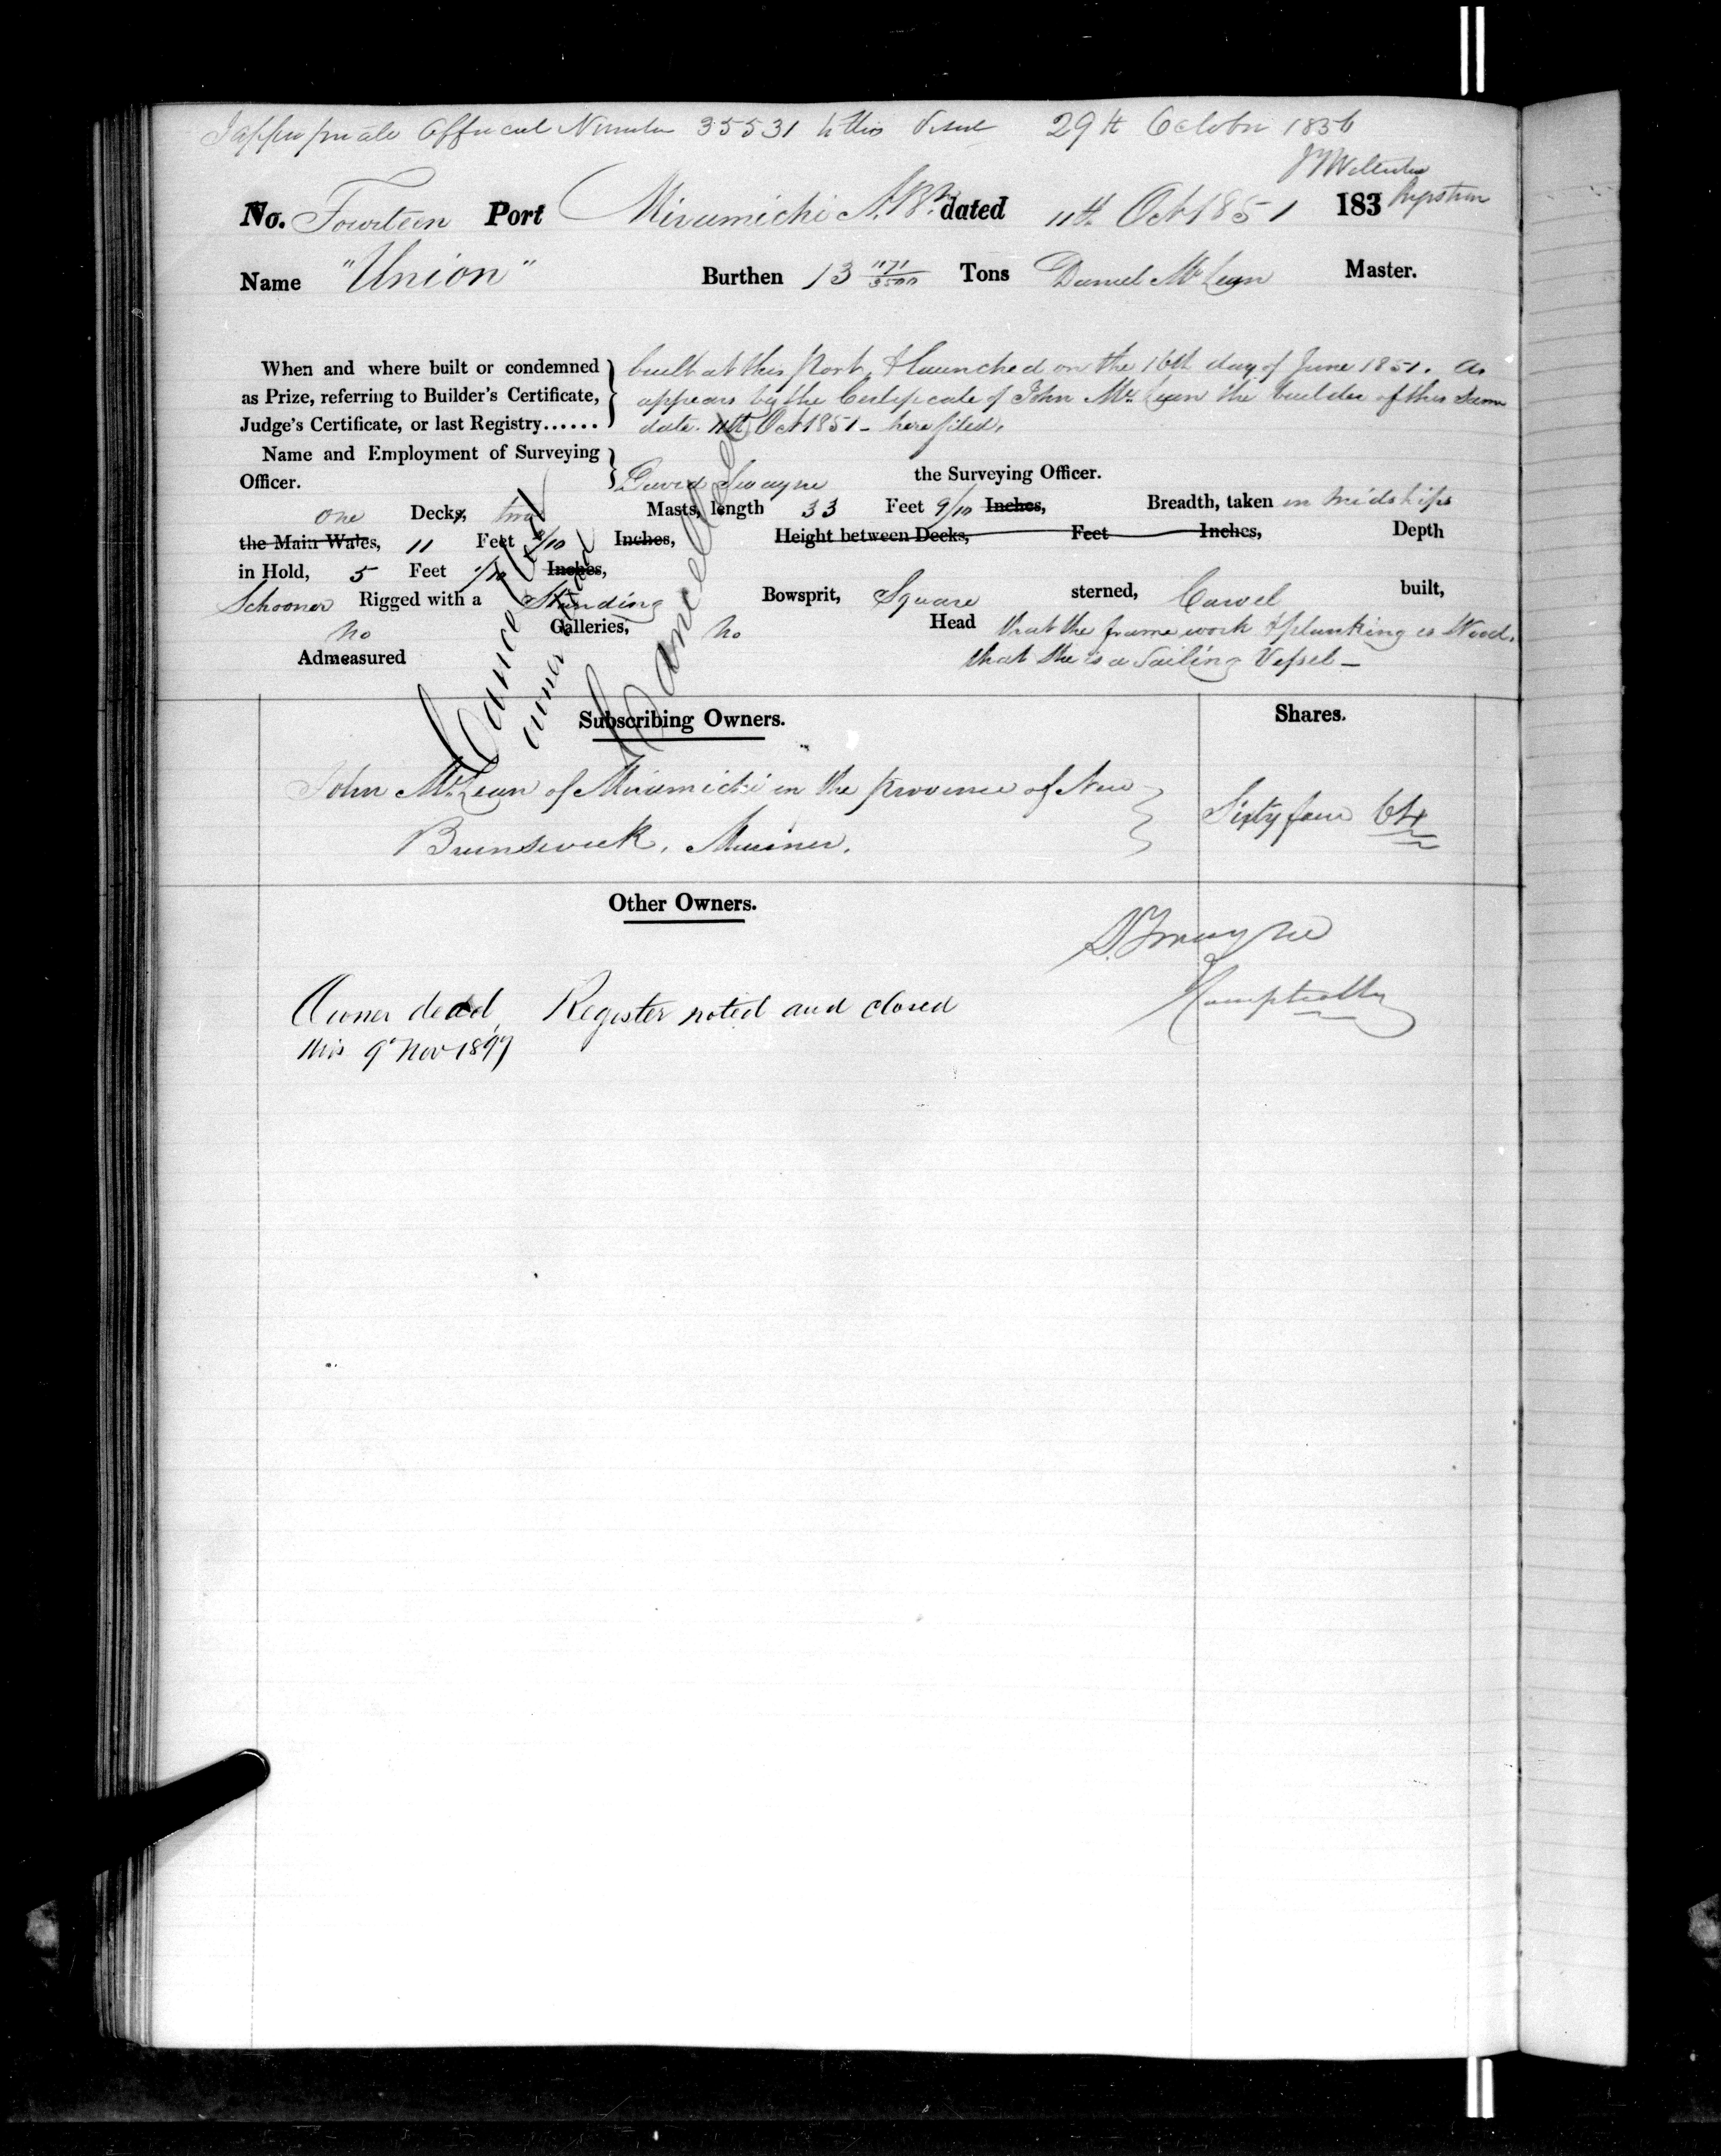 I appropriate Official Number 35531 to this Vessel 29th October 1856
No. Fourteen Port Miramichi N.B. dated 11th Oct 1851 183
Name "Union" Burthen 13 1171/3500 Tons Daniel McLean Master.
When and where built or condemned as Prize, referring to Builder's Certificate, Judge's Certificate, or last Registry......
built at this Port, & launched on the 16th day of June 1851. As
appears by the Certificate of John McLean the builder of this same
date. 11th Oct 1851 - here filed.
Name and Employment of Surveying Officer.
David Swayne the Surveying Officer.
one Decks, two Masts, length 33 Feet 9/10 Inches, Breadth, taken in Midships
the Main Wales, 11 Feet /10 Inches, Height between Decks, Feet Inches, Depth
in Hold, 5 Feet /10 Inches,
Schooner Rigged with a Standing Bowsprit, Square sterned, Carvel built,
no Galleries, no Head that the frame work & planking is Wood.
Admeasured that she is a Sailing Vessel -
Cancelled
owner dead
Cancelled
Subscribing Owners. Shares.
John McLean of Miramichi in the province of New
Brunswick. Mariner. Sixty four 64
Other Owners.
D. Swayne
Comptroller
Owner dead, Register noted and closed
this 9' Nov 1897